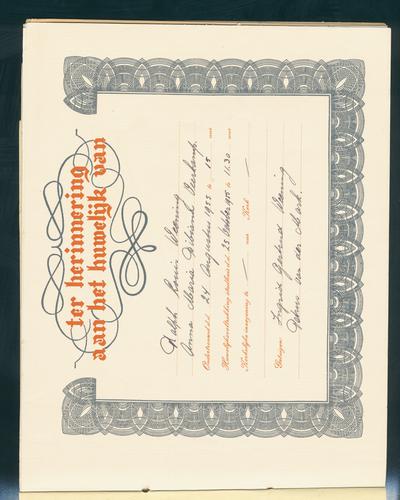 ter herinnering
aan het huwelijk van
Ralph Louis Wearing
Anna Maria Verkamp
Ondertrouwd d.d. 24 Augustus 1955 te 15 uur
Huwelijksvoltrekking stadhuis d.d. 25 October 1955 te 11.30 uur
Kerkelijke inzegening te — uur Kerk —
Getuigen: Ingrid Gertrud Wearing
van der Mark